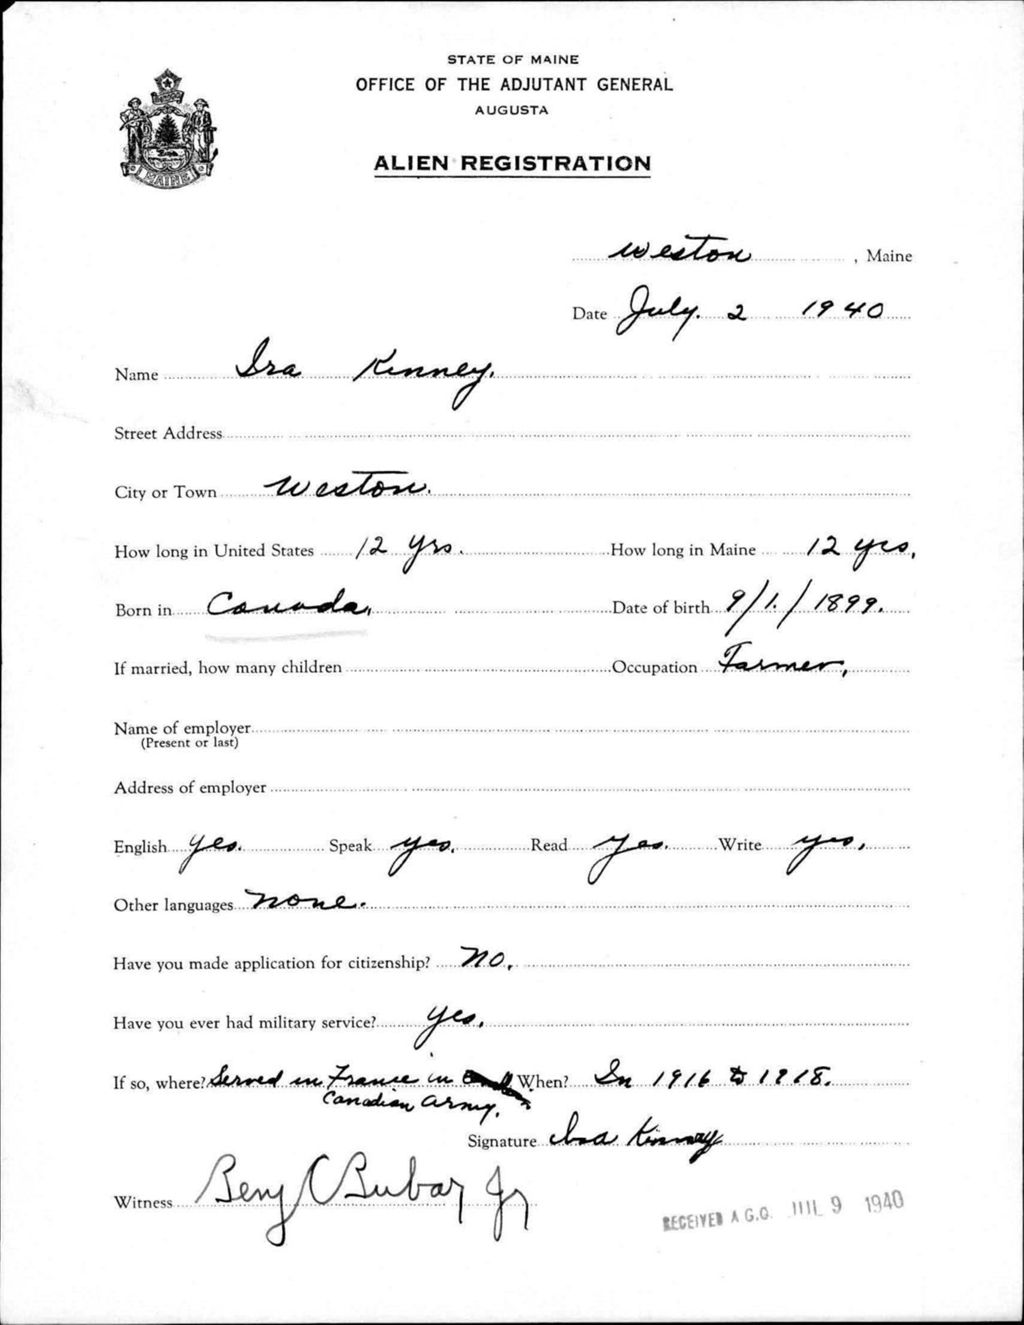 STATE OF MAINE
OFFICE OF THE ADJUTANT GENERAL
AUGUSTA
ALIEN REGISTRATION
MAINE
Weston, Maine
Date July. 2 1940
Name Ira Kinney.
Street Address
City or Town Weston.
How long in United States 12 yrs. How long in Maine 12 yrs.
Born in Canada, Date of birth 9/1./1899.
If married, how many children Occupation Farmer,
Name of employer
(Present or last)
Address of employer
English Yes. Speak yes. Read Yes. Write yes.
Other languages None.
Have you made application for citizenship? No.
Have you ever had military service? Yes.
If so, where? Served in France in When? In 1916 to 1918.
Canadian Army.
Signature Ira Kinney
Witness Benj C Bubar Jr
RECEIVED A.G.O. JUL 9 1940